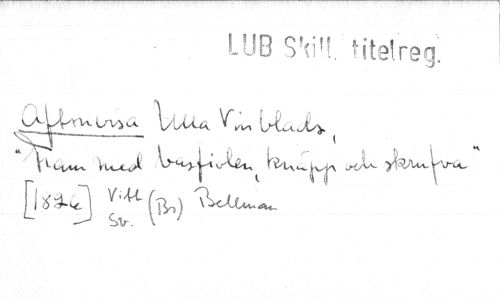 LUB Skill. titelreg.
Aftonvisa Ulla Vinblads,
"Fram med basfiolen, knäpp och skrufva"
[1826] Vitt (Br) Bellman
Sv.